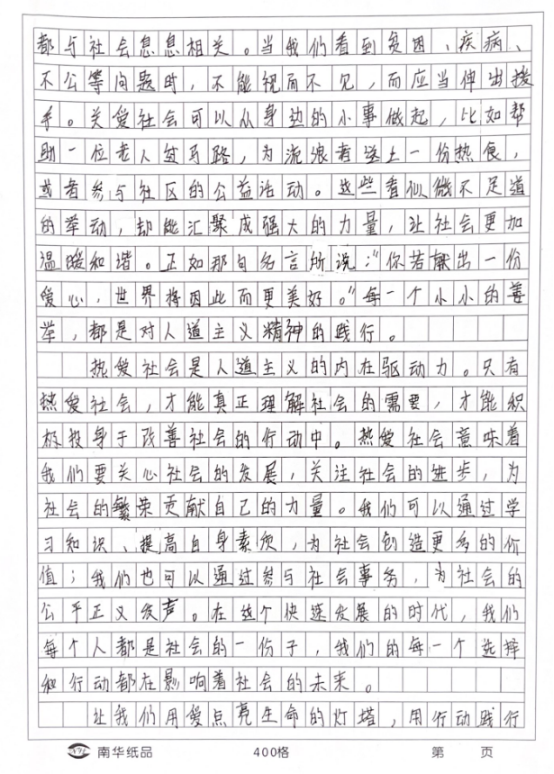 都与社会息息相关。当我们看到贫困、疾病、
不公等问题时，不能视而不见，而应当伸出援
手。关爱社会可以从身边的小事做起，比如帮
助一位老人过马路，为流浪者送上一份热食，
或者参与社区的公益活动。这些看似微不足道
的举动，却能汇聚成强大的力量，让社会更加
温暖和谐。正如那句名言所说：“你若献出一份
爱心，世界将因此而更美好。”每一个小小的善
举，都是对人道主义精神的践行。
热爱社会是人道主义的内在驱动力。只有
热爱社会，才能真正理解社会的需要，才能积
极投身于改善社会的行动中。热爱社会意味着
我们要关心社会的发展，关注社会的进步，为
社会的繁荣贡献自己的力量。我们可以通过学
习知识、提高自身素质，为社会创造更多的价
值；我们也可以通过参与社会事务，为社会的
公平正义发声。在这个快速发展的时代，我们
每个人都是社会的一份子，我们的每一个选择
和行动都在影响着社会的未来。
让我们用爱点亮生命的灯塔，用行动践行
南华纸品 400格 第 页